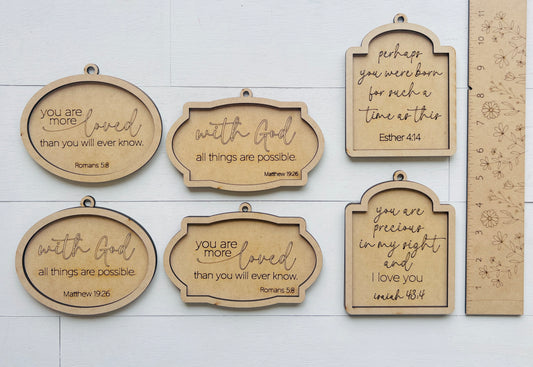 you are
more loved
than you will ever know.
Romans 5:8
with God
all things are possible.
Matthew 19:26
perhaps
you were born
for such a
time as this
Esther 4:14
with God
all things are possible.
Matthew 19:26
you are
more loved
than you will ever know.
Romans 5:8
you are
precious
in my sight
and
I love you
isaiah 43:4
11
10
9
8
7
6
5
4
3
2
1